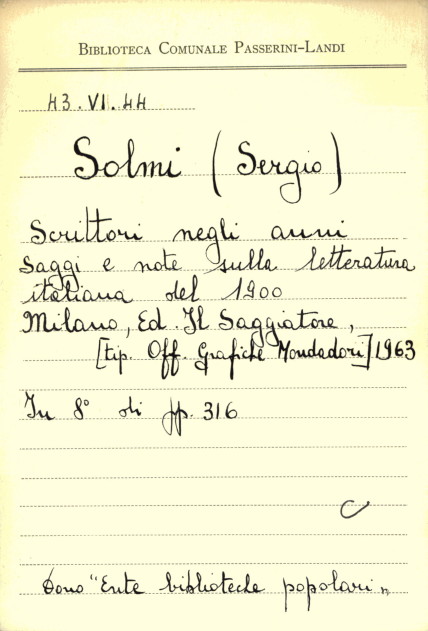 BIBLIOTECA COMUNALE PASSERINI-LANDI
43.VI.44
Solmi (Sergio)
Scrittori negli anni
Saggi e note sulla letteratura
italiana del 1900
Milano, Ed. Il Saggiatore,
[tip. Off. Grafiche Mondadori] 1963
In 8° di pp. 316
C
Dono "Ente biblioteche popolari"